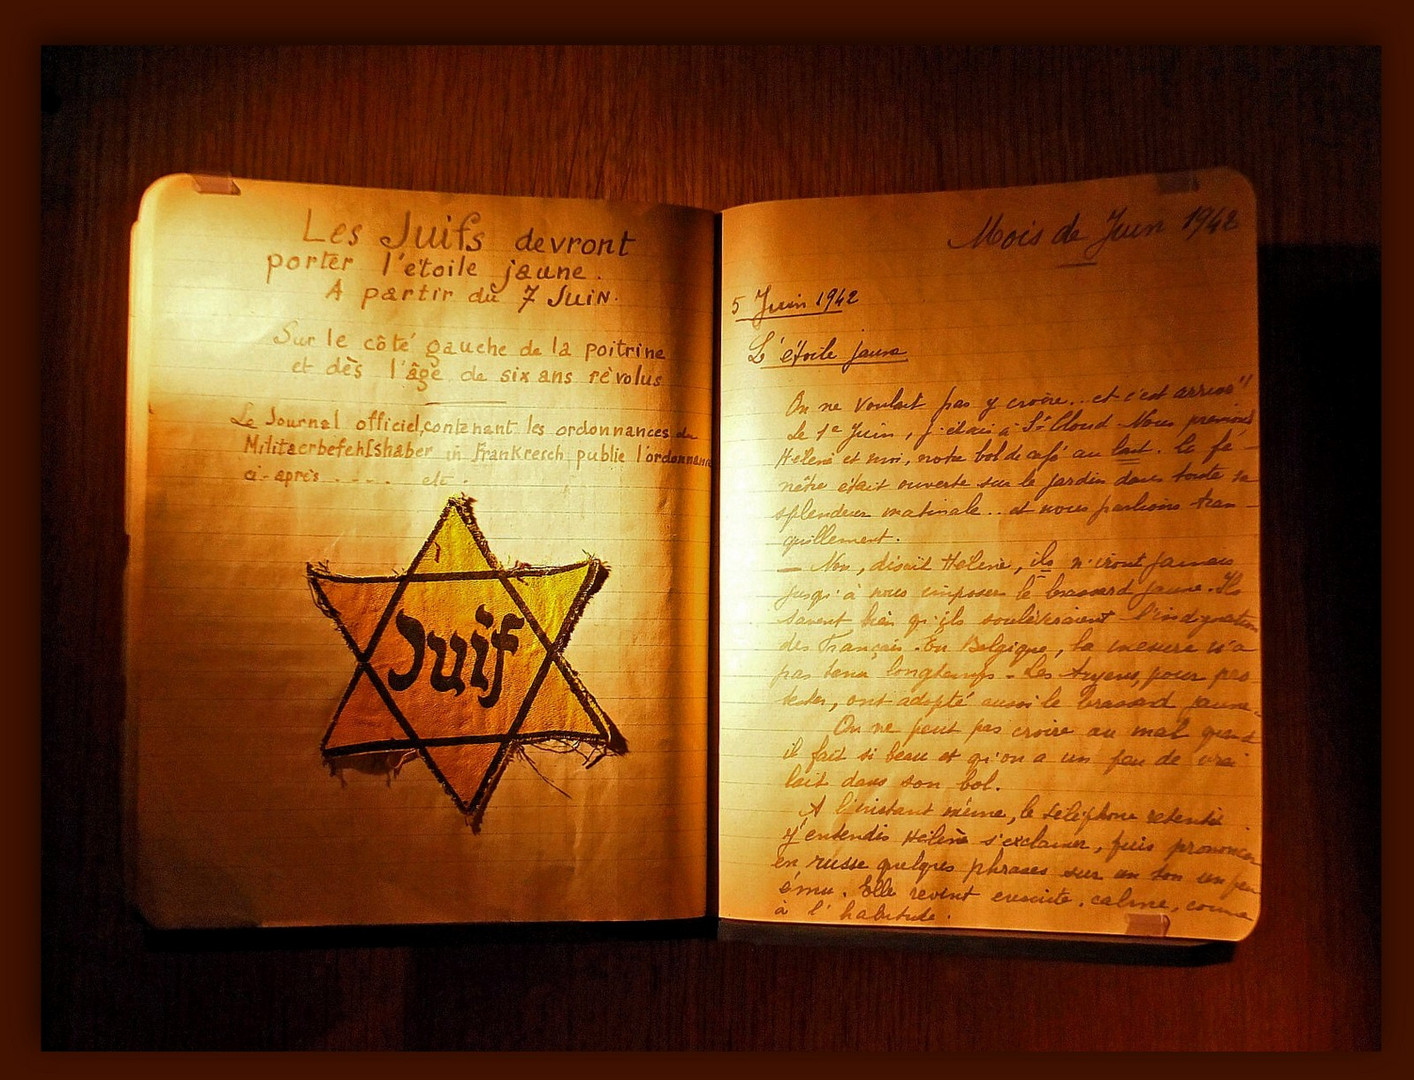 Les Juifs devront
porter l'étoile jaune.
A partir du 7 Juin.
Sur le côté gauche de la poitrine
et dès l'âge de six ans révolus
Le Journal officiel, contenant les ordonnances du
Militaerbefehlshaber in Frankreich publie l'ordonnance
ci-après .... etc.
Juif
Mois de Juin 1942
5 Juin 1942
L'étoile jaune
On ne voulait pas y croire... et c'est arrivé!!
Le 1e Juin, j'étais à St Cloud. Nous prenions
Hélène et moi, notre bol de café au lait. La fe-
nêtre était ouverte sur le jardin dans toute sa
splendeur matinale.. et nous parlions tran-
quillement.
— Non, disait Hélène, ils n'iront jamais
jusqu'à nous imposer le brassard jaune. Ils
savent bien qu'ils soulèveraient l'indignation
des Français. En Belgique, la mesure n'a
pas tenu longtemps - Les Aryens, pour pro
tester, ont adopté aussi le brassard jaune.
On ne peut pas croire au mal quand
il fait si beau et qu'on a un peu de vrai
lait dans son bol.
A l'instant même, le téléphone retentit.
J'entendis Hélène s'exclamer, puis prononcer
en russe quelques phrases sur un ton un peu
ému. Elle revint ensuite, calme, comme
à l'habitude.